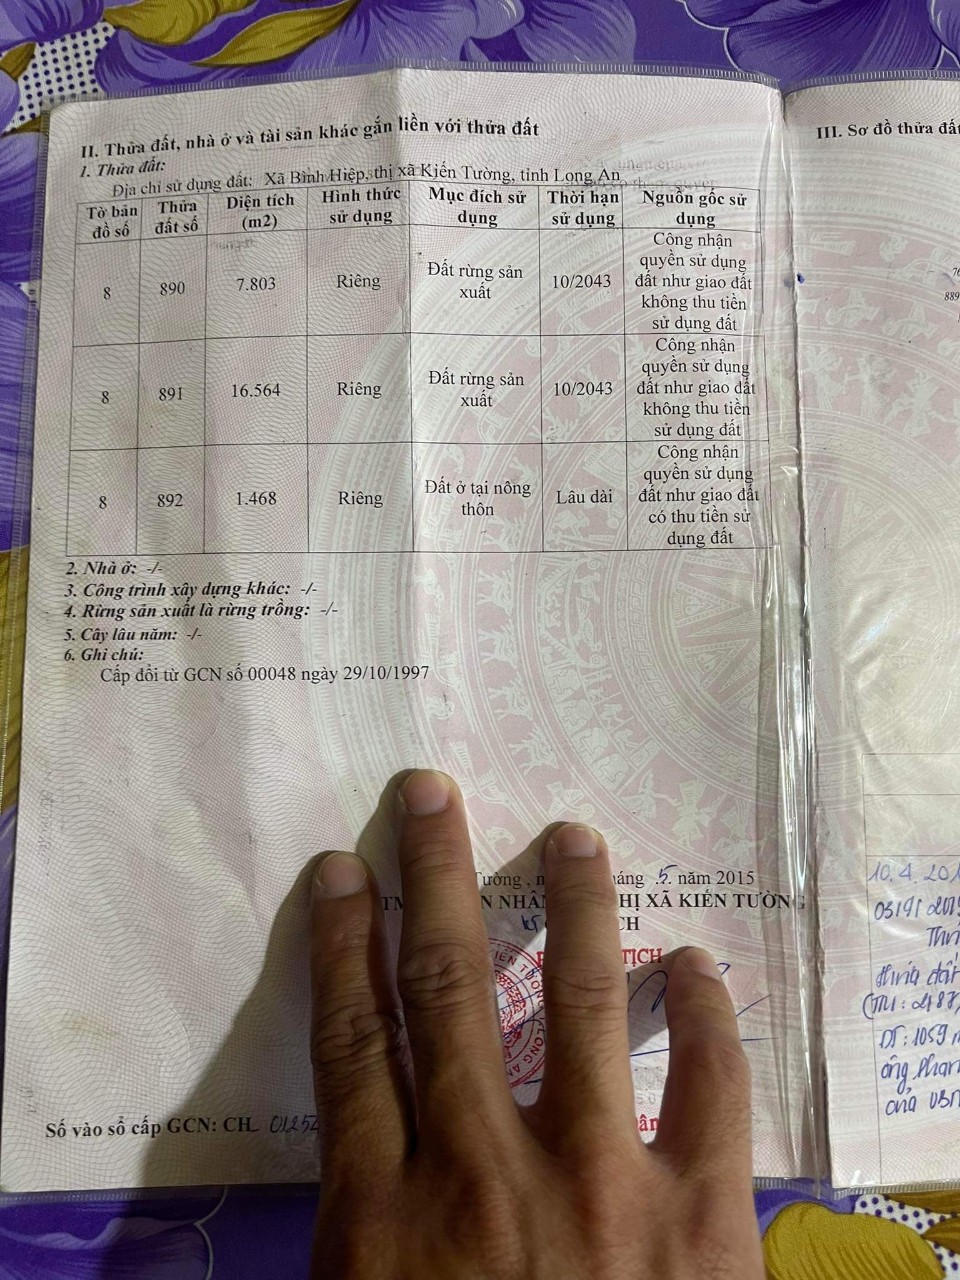 II. Thửa đất, nhà ở và tài sản khác gắn liền với thửa đất
1. Thửa đất:
Địa chỉ sử dụng đất: Xã Bình Hiệp, thị xã Kiến Tường, tỉnh Long An
Tờ bản đồ số Thửa đất số Diện tích (m2) Hình thức sử dụng Mục đích sử dụng Thời hạn sử dụng Nguồn gốc sử dụng
8 890 7.803 Riêng Đất rừng sản xuất 10/2043 Công nhận quyền sử dụng đất như giao đất không thu tiền sử dụng đất
8 891 16.564 Riêng Đất rừng sản xuất 10/2043 Công nhận quyền sử dụng đất như giao đất không thu tiền sử dụng đất
8 892 1.468 Riêng Đất ở tại nông thôn Lâu dài Công nhận quyền sử dụng đất như giao đất có thu tiền sử dụng đất
2. Nhà ở: -/-
3. Công trình xây dựng khác: -/-
4. Rừng sản xuất là rừng trồng: -/-
5. Cây lâu năm: -/-
6. Ghi chú:
Cấp đổi từ GCN số 00048 ngày 29/10/1997
Tường, n áng 5 năm 2015
TM N NHÂN HỊ XÃ KIẾN TƯỜNG
KT CH
TỊCH
Số vào sổ cấp GCN: CH 01252
III. Sơ đồ thửa đất
889
10.4.201